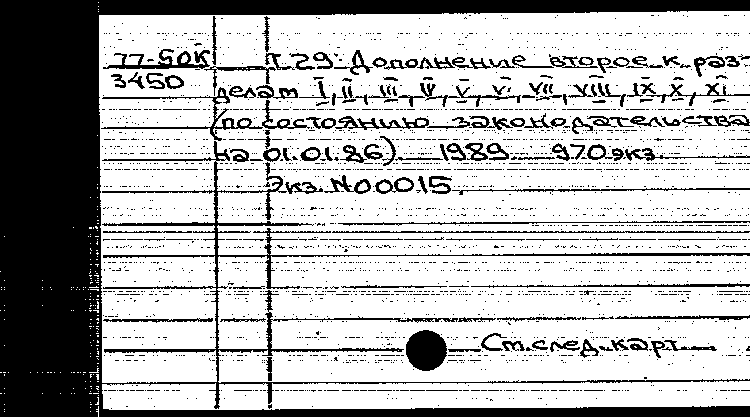 77-50К Т.29. Дополнение второе к раз-
3450 делам I, II, III, IV, V, VI, VII, VIII, IX, X, XI
(по состоянию законодательства
на 01.01.86). 1989. 970экз.
Экз. №00015.
См.след.карт.